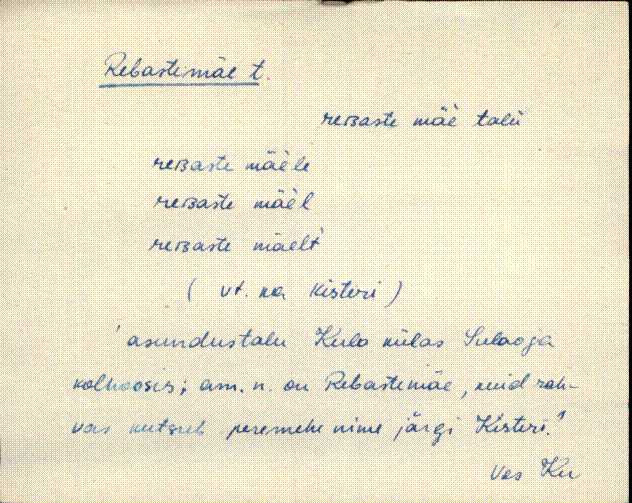 Rebastemäe t.
reʙaste mäè talù
reʙaste mäèle
reʙaste mäèl
reʙaste mäelt
( vt. ka Kisteri )
"asundustalu Kulo külas Sulaoja
kolhoosis; am. n. on Rebastemäe, kuid rah-
vas kutsub peremehe nime järgi Kisteri."
Vas Ku